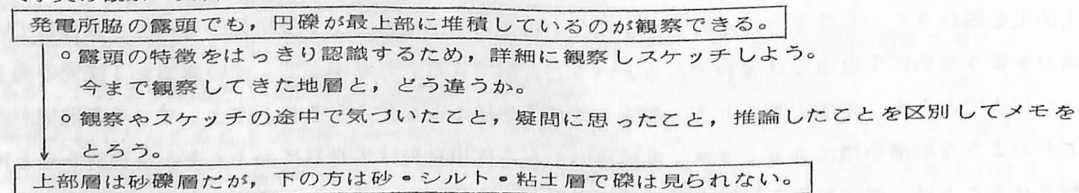 発電所脇の露頭でも，円礫が最上部に堆積しているのが観察できる。
○露頭の特徴をはっきり認識するため，詳細に観察しスケッチしよう。
今まで観察してきた地層と，どう違うか。
○観察やスケッチの途中で気づいたこと，疑問に思ったこと，推論したことを区別してメモを
とろう。
上部層は砂礫層だが，下の方は砂・シルト・粘土層で礫は見られない。